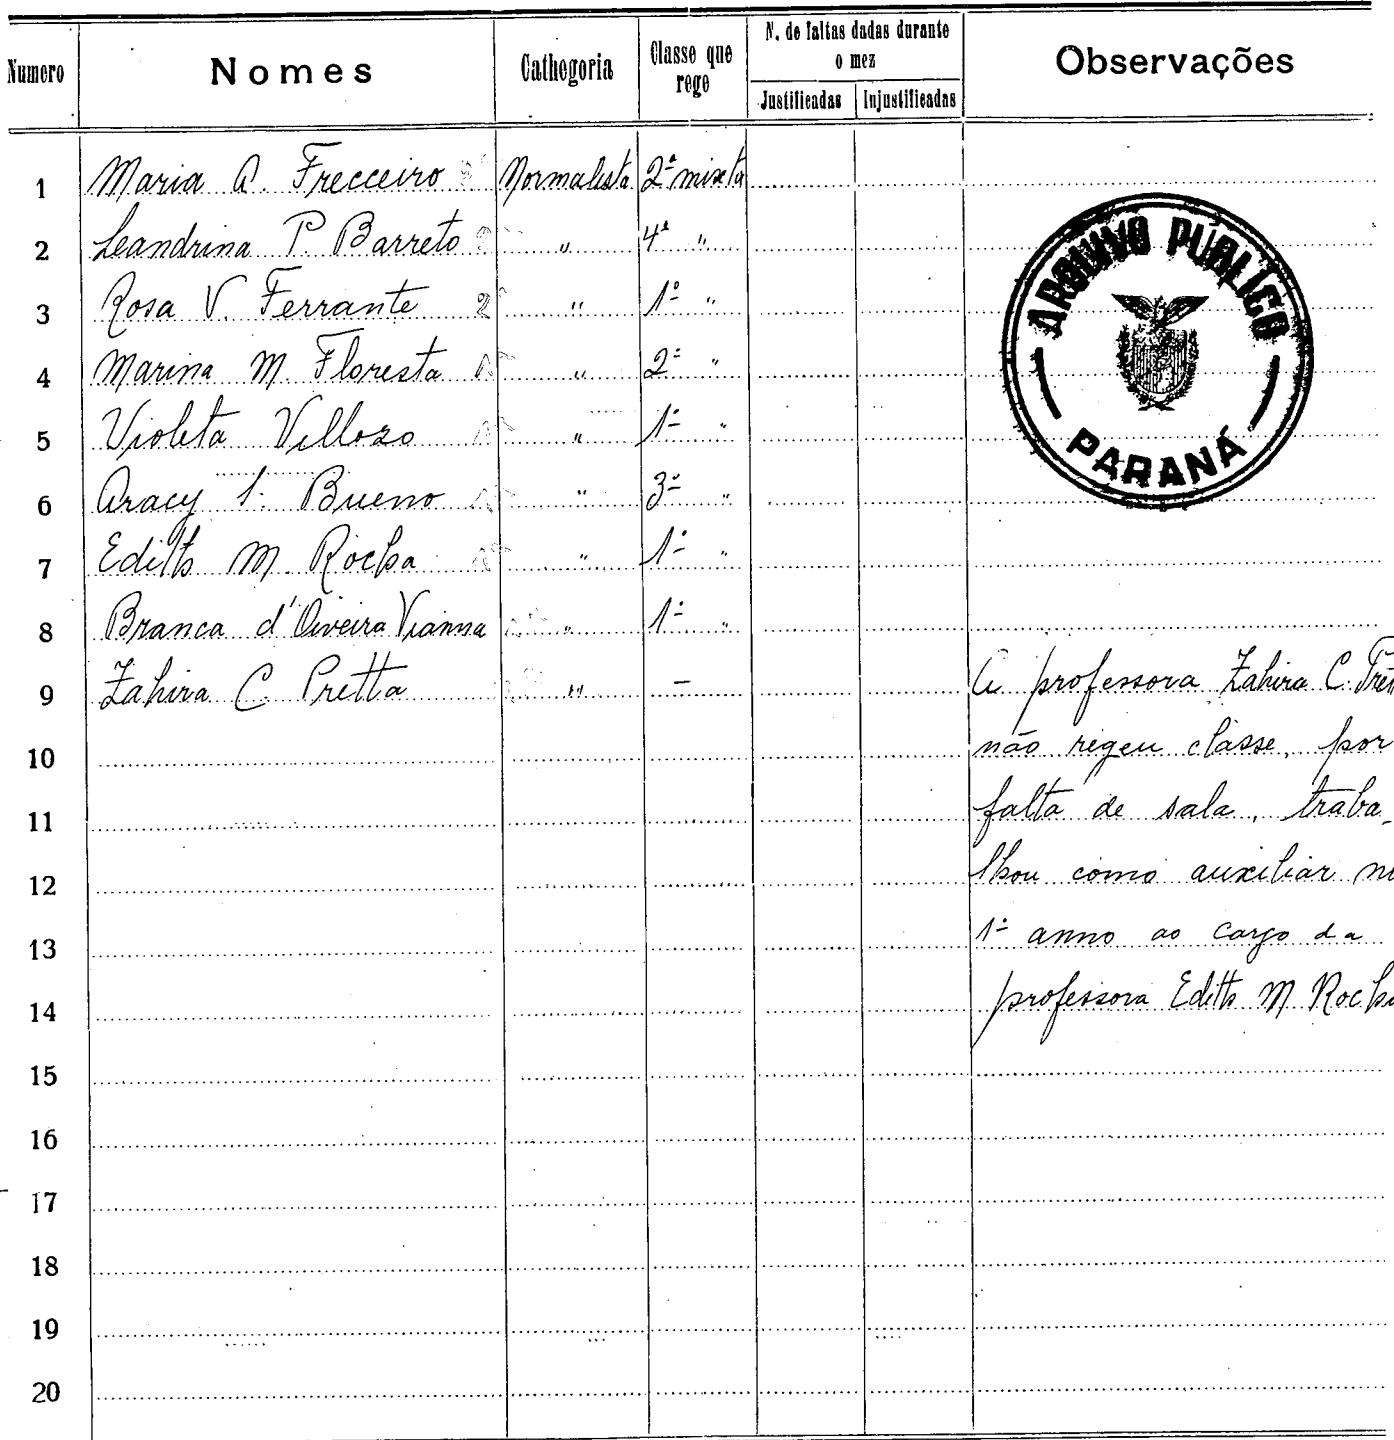 Numero Nomes Cathegoria Classe que rege N. de faltas dadas durante o mez Observações
Justificadas Injustificadas
1 Maria A. Frecceiro Normalista 2ª mixta
2 Leandrina P. Barreto " 4ª "
3 Rosa V. Ferrante " 1ª "
4 Marina M. Floresta " 2ª "
5 Violeta Vellozo " 1ª "
6 Aracy S. Bueno " 3ª "
7 Edith M. Rocha " 1ª "
8 Branca d'Oiveira Vianna " 1ª "
9 Zahira C. Pretta " – A professora Zahira C.
10 não regeu classe, por
11 falta de sala, traba-
12 lhou como auxiliar
13 1º anno ao cargo da
14 professora Edith M Rocha
15
16
17
18
19
20
ARQUIVO PÚBLICO
PARANÁ